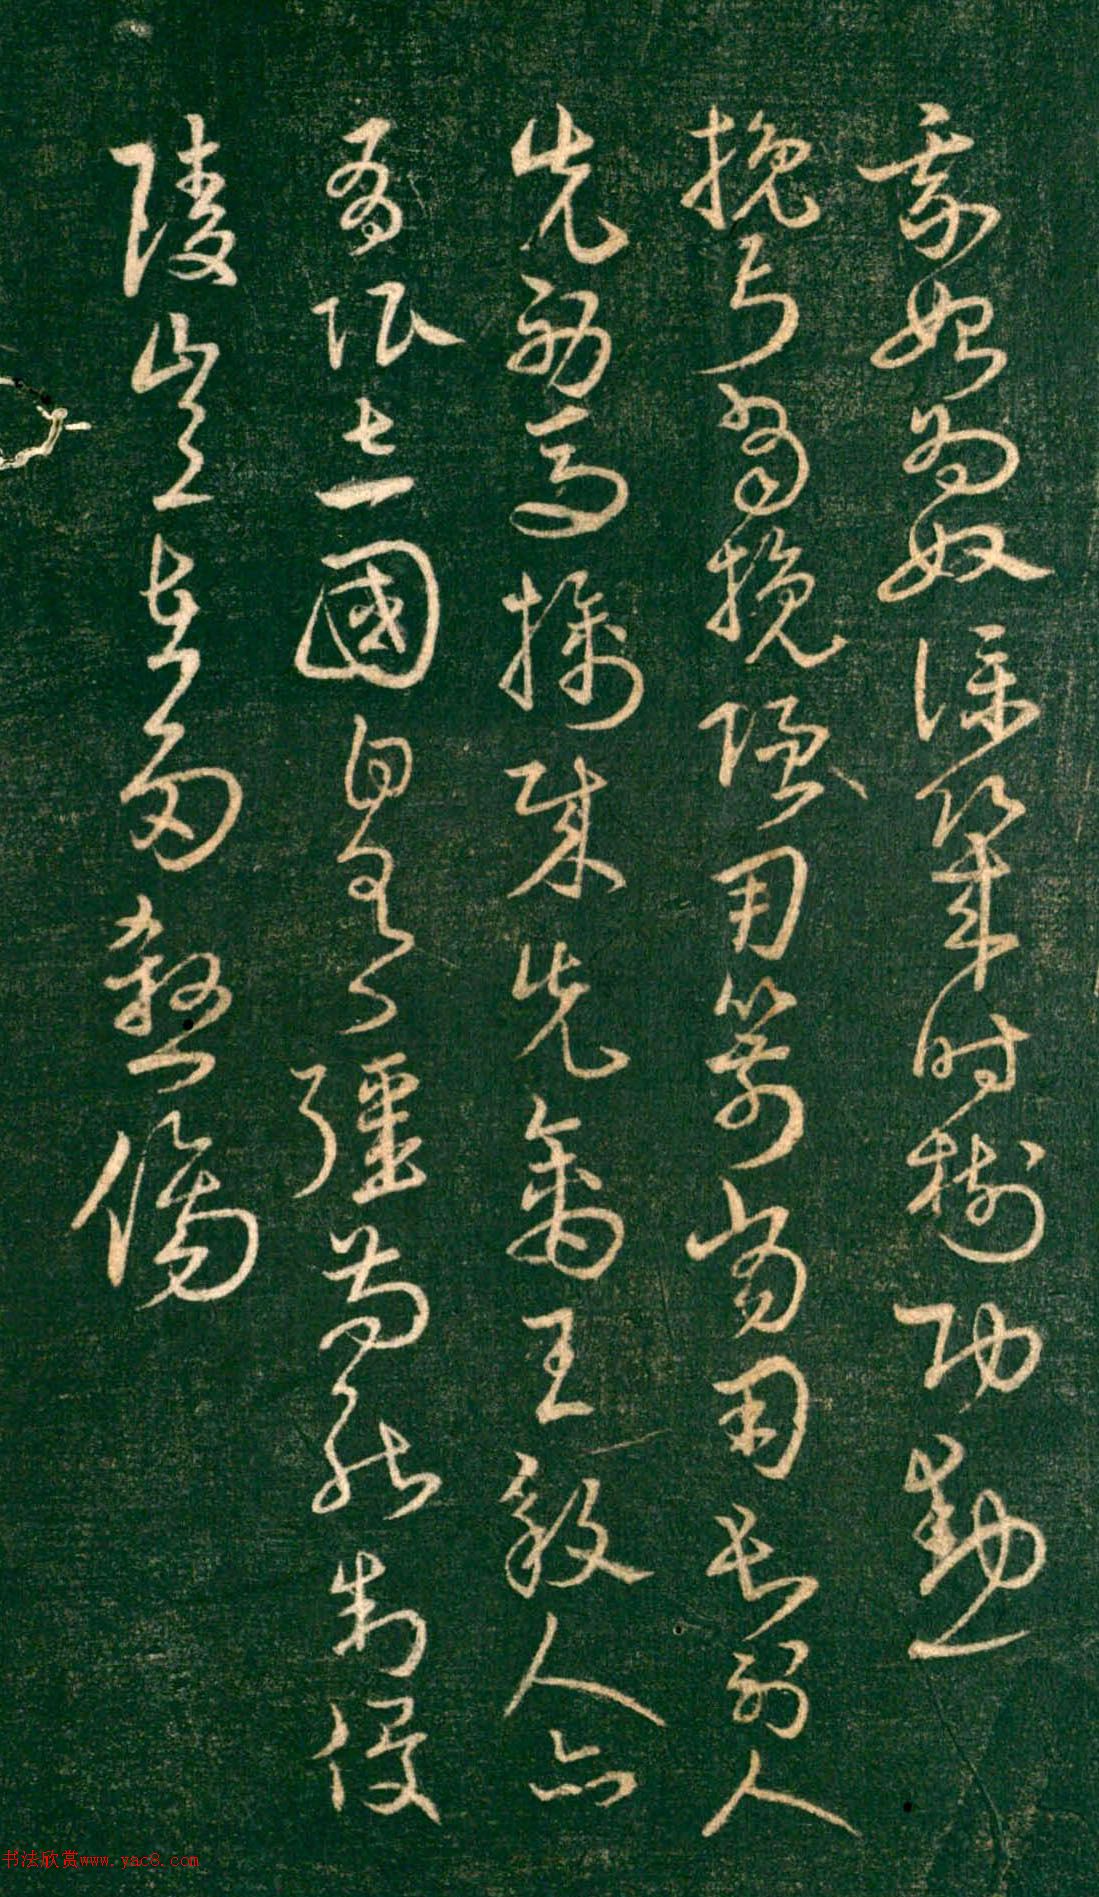 我始為奴僕幾時樹功勳
挽弓當挽強用箭當用長射人
先射馬擒賊先擒王殺人亦
有限立國自有疆苟能制侵
陵豈在多殺傷
书法欣赏www.yac8.com